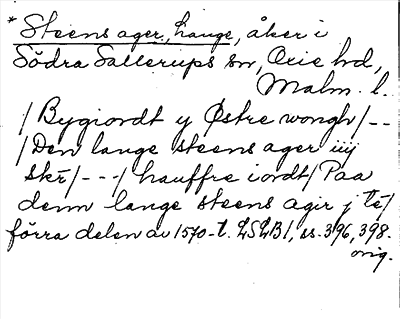 * Steens ager, Lange, åker i
Södra Sallerups sn, Oxie hd,
Malm. l.
/Bygiordt y Østre wongh/--
/Den lange steens ager iiij
skr/---/hauffre iordt/Paa
denn lange steens agir j te/
förra delen av 1570-t. LSLB1, ss. 396, 398.
orig.